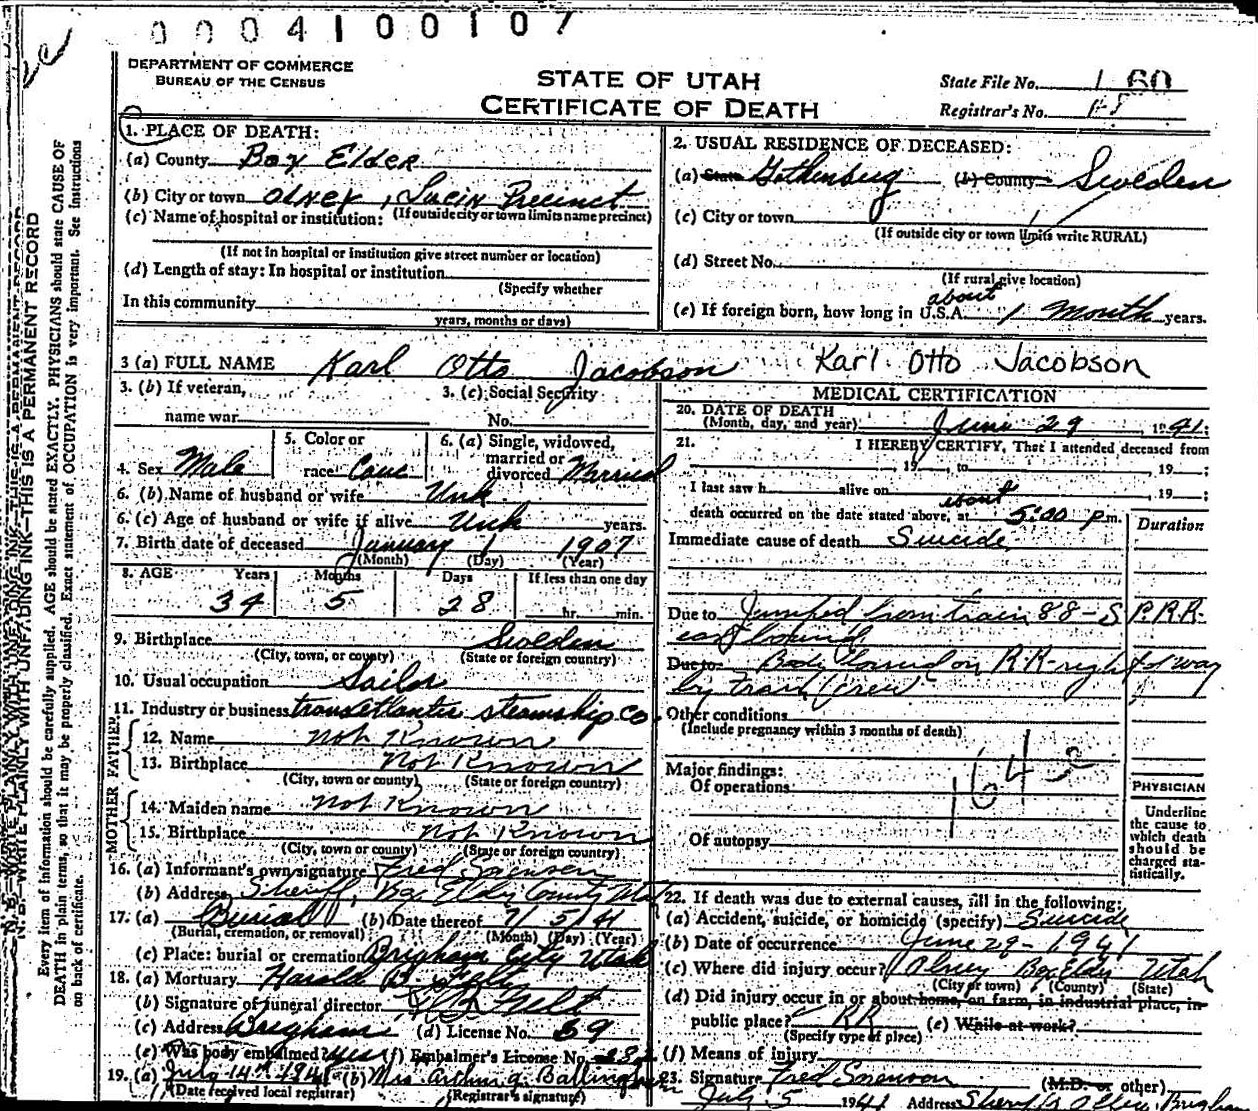 0004100107
DEPARTMENT OF COMMERCE
BUREAU OF THE CENSUS
STATE OF UTAH
CERTIFICATE OF DEATH
State File No. 160
Registrar's No.
1. PLACE OF DEATH:
(a) County Box Elder
(b) City or town Olney, Lucin Precinct
(If outside city or town limits name precinct)
(c) Name of hospital or institution:
(If not in hospital or institution give street number or location)
(d) Length of stay: In hospital or institution
(Specify whether
In this community
years, months or days)
2. USUAL RESIDENCE OF DECEASED:
(a) State Gothenberg (b) County Sweden
(c) City or town
(If outside city or town limits write RURAL)
(d) Street No.
(If rural give location)
(e) If foreign born, how long in U.S.A. about 1 Month years.
3 (a) FULL NAME Karl Otto Jacobson Karl Otto Jacobson
3. (b) If veteran,
name war
3. (c) Social Security
No.
4. Sex Male
5. Color or
race Cauc
6. (a) Single, widowed,
married or
divorced Married
6. (b) Name of husband or wife Unk
6. (c) Age of husband or wife if alive Unk years.
7. Birth date of deceased January 1 1907
(Month) (Day) (Year)
8. AGE Years Months Days If less than one day
34 5 28 hr. min.
9. Birthplace Sweden
(City, town, or county) (State or foreign country)
10. Usual occupation Sailor
11. Industry or business transatlantic steamship co.
FATHER
12. Name Not Known
13. Birthplace Not Known
(City, town or county) (State or foreign country)
MOTHER
14. Maiden name Not Known
15. Birthplace Not Known
(City, town or county) (State or foreign country)
16. (a) Informant's own signature Fred Sorensen
(b) Address Sheriff, Box Elder County Utah
17. (a) Burial (b) Date thereof 7/5/41
(Burial, cremation, or removal) (Month) (Day) (Year)
(c) Place: burial or cremation Brigham City Utah
18. (a) Mortuary Harold B. Felt
(b) Signature of funeral director H B Felt
(c) Address Brigham (d) License No. 59
(e) Was body embalmed? Yes (f) Embalmer's License No.
19. (a) July 14th 1941 (b) Mrs. Arthur G. Ballingham
(Date received local registrar) (Registrar's signature)
MEDICAL CERTIFICATION
20. DATE OF DEATH
(Month, day, and year) June 29, 1941;
21. I HEREBY CERTIFY, That I attended deceased from
, 19 , to , 19 ;
I last saw h alive on , 19 ;
death occurred on the date stated above, at about 5:00 p m.
Duration
Immediate cause of death Suicide
Due to Jumped from train 88-S.P.R.R.
east bound
Due to Body found on R.R. right of way
by train crew
Other conditions
(Include pregnancy within 3 months of death)
Major findings:
Of operations
164
Of autopsy
PHYSICIAN
Underline
the cause to
which death
should be
charged sta-
tistically.
22. If death was due to external causes, fill in the following:
(a) Accident, suicide, or homicide (specify) Suicide
(b) Date of occurrence June 29-1941
(c) Where did injury occur? Olney Box Elder Utah
(City or town) (County) (State)
(d) Did injury occur in or about home, on farm, in industrial place, in
public place? RR (e) While at work?
(Specify type of place)
(f) Means of injury
23. Signature Fred Sorenson (M.D. or other)
July 5 1941 Address Sheriff's Office, Brigham
N. B.—WRITE PLAINLY WITH UNFADING INK—THIS IS A PERMANENT RECORD
Every item of information should be carefully supplied. AGE should be stated EXACTLY. PHYSICIANS should state CAUSE OF
DEATH in plain terms, so that it may be properly classified. Exact statement of OCCUPATION is very important. See instructions
on back of certificate.